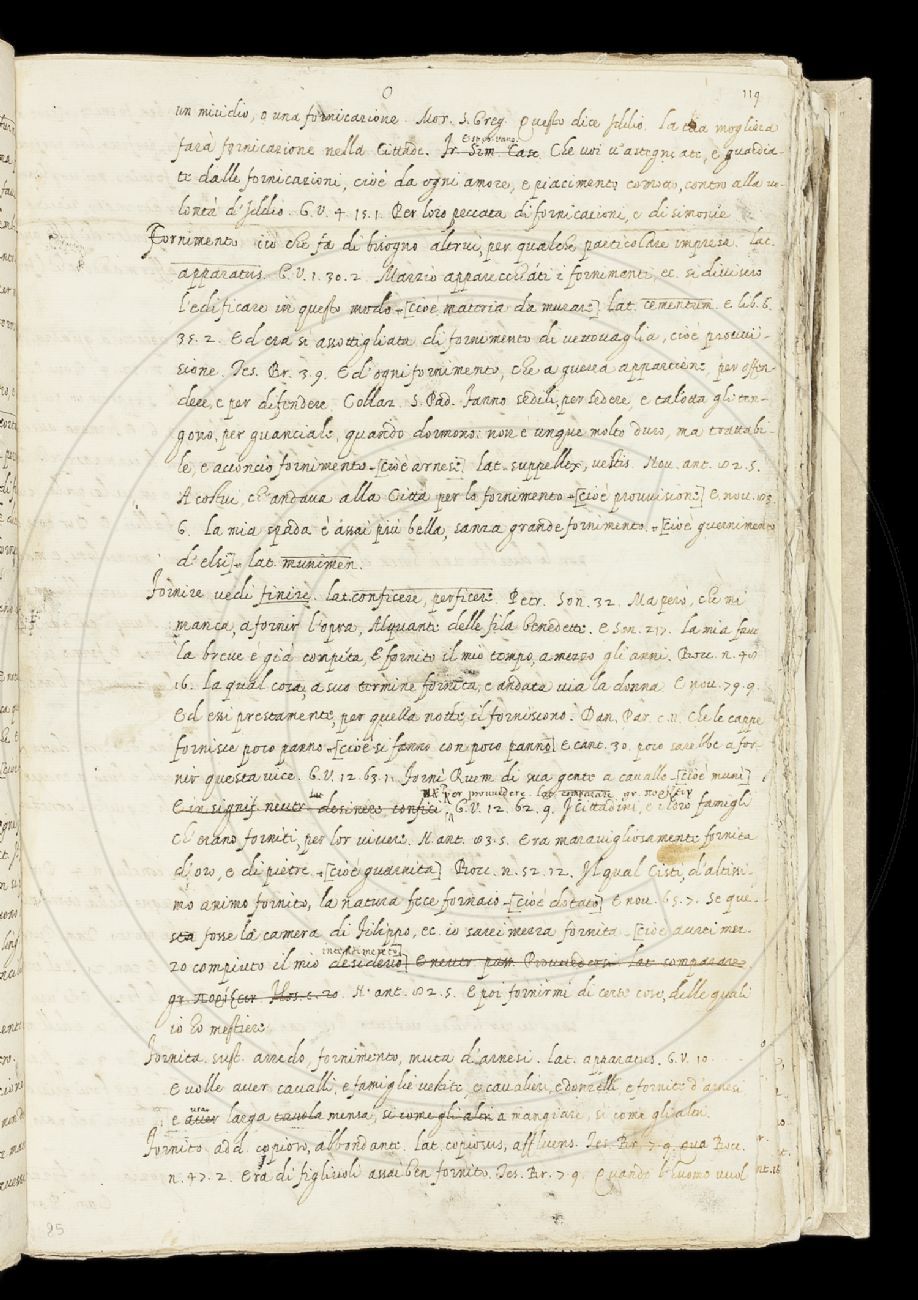 O 119
un micidio, o una fornicazione. Mor. S. Greg. Questo dice Iddio. La tua mogliera
farà fornicazione nella Cittade. Fr. Sim. Casc. Espos. Vang. Che voi v'astegniate, e guardia-
te dalle fornicazioni, cioè da ogni amore, e piacimento contro alla vo-
lontà d'Iddio. G. V. 4. 15. 1. Per loro peccata di fornicazioni, e di simonie
Fornimento ciò che fa di bisogno altrui, per qualche particolare impresa. lat.
apparatus. G. V. 1. 30. 2. Marzio apparecchiati i fornimenti ec. si divisero
l'edificare in questo modo [cioè materia da murare] lat. cementum. e lib. 6.
35. 2. Ed era sì assottigliata di fornimento di vettovaglia, cioè provvi-
sione. Tes. Br. 3. 9. E d'ogni fornimento, che a guerra appartiene, per offen
dere, e per difendere. Collaz. S. Pad. Fanno sedili, per sedere, e calotta gli ten-
gono, per guanciale, quando dormono: non è unque molto duro, ma trattabi-
le, e acconcio fornimento [cioè arnese] lat. suppellex, vestis. Nov. ant. 82. 5.
A costui, ch'andava alla Città per lo fornimento [cioè provvisione] E nov. 83.
6. La mia spada è assai più bella, sanza grande fornimento. [cioè guernimento
d'elsi] lat. munimen.
Fornire vedi finire. lat. conficere, perficere. Petr. Son. 32. Ma però, che mi
manca, a fornir l'opra, Alquante delle fila benedette. e Son. 217. La mia favo
la breve è già compita, E fornito il mio tempo, a mezzo gli anni. Bocc. n. 48
16. La qual cosa, a suo termine fornita, e andata via la donna E nov. 79. 9.
Ed essi prestamente, per quella notte, il forniscono. Dan. Par. c. 11. Che le cappe
fornisce poco panno [cioè si fanno con poco panno] E cant. 30. poco sarebbe a for-
nir questa vice. G. V. 12. 63. 1. Fornì Ruem di sua gente a cavallo [cioè munì]
per provvedere. lat. comparare gr. πορίζειν
E in signif. neutr. lat. desinere confici, G. V. 12. 62. 9. I Cittadini, e i loro famigli
ch'erano forniti, per lor vivere. N. ant. 83. 5. Era maravigliosamente fornita
d'oro, e di pietre [cioè guarnita] Bocc. n. 52. 12. Il qual Cisti, d'altissi-
mo animo fornito, la natura fece fornaio [cioè dotato] E nov. 65. 7. Se que-
sta fosse la camera di Filippo, ec. io sarei mezza fornita [cioè avrei mez-
intendimento]
zo compiuto il mio desiderio] E neutr. pass. Provvedersi. lat. comparare
gr. πορίζειν N. ant. 82. 5. E poi fornirmi di certe cose, delle quali
io ho mestiere
Fornita. sust. arredo, fornimento, muta d'arnesi. lat. apparatus. G. V. 10.
E volle aver cavalli, e famiglie vestite, e cavalieri, e donzelli e fornite d'arnesi
usar
e aver larga tavola mensa, si come gli altri a mangiare, si come gli altri.
Fornito. add. copioso, abbondante. lat. copiosus, affluens. Bocc.
n. 47. 2. Era di figliuoli assai ben fornito. Tes. Br. 7. 9. Quando l'huomo vuol
85